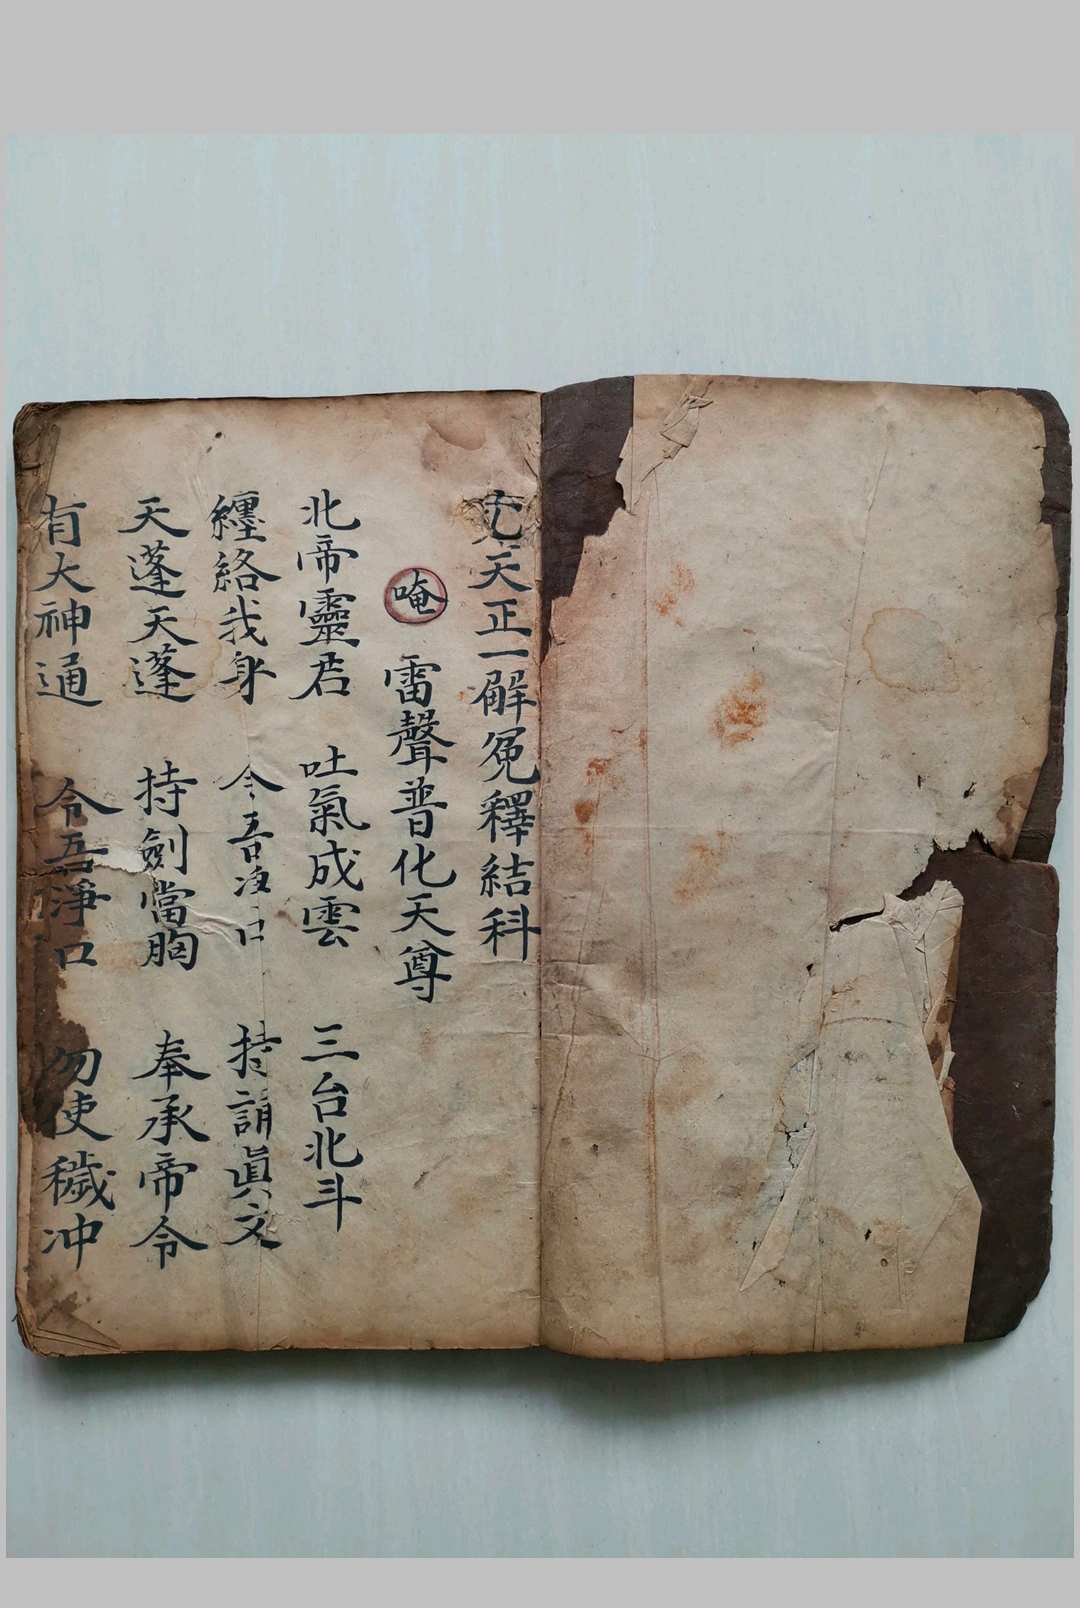 天正一解冤釋結科
唵 雷聲普化天尊
北帝靈君 吐氣成雲 三台北斗
纏絡我身 令吾净口 持誦眞文
天蓬天蓬 持劍當胸 奉承帝令
有大神通 令吾淨口 勿使穢冲